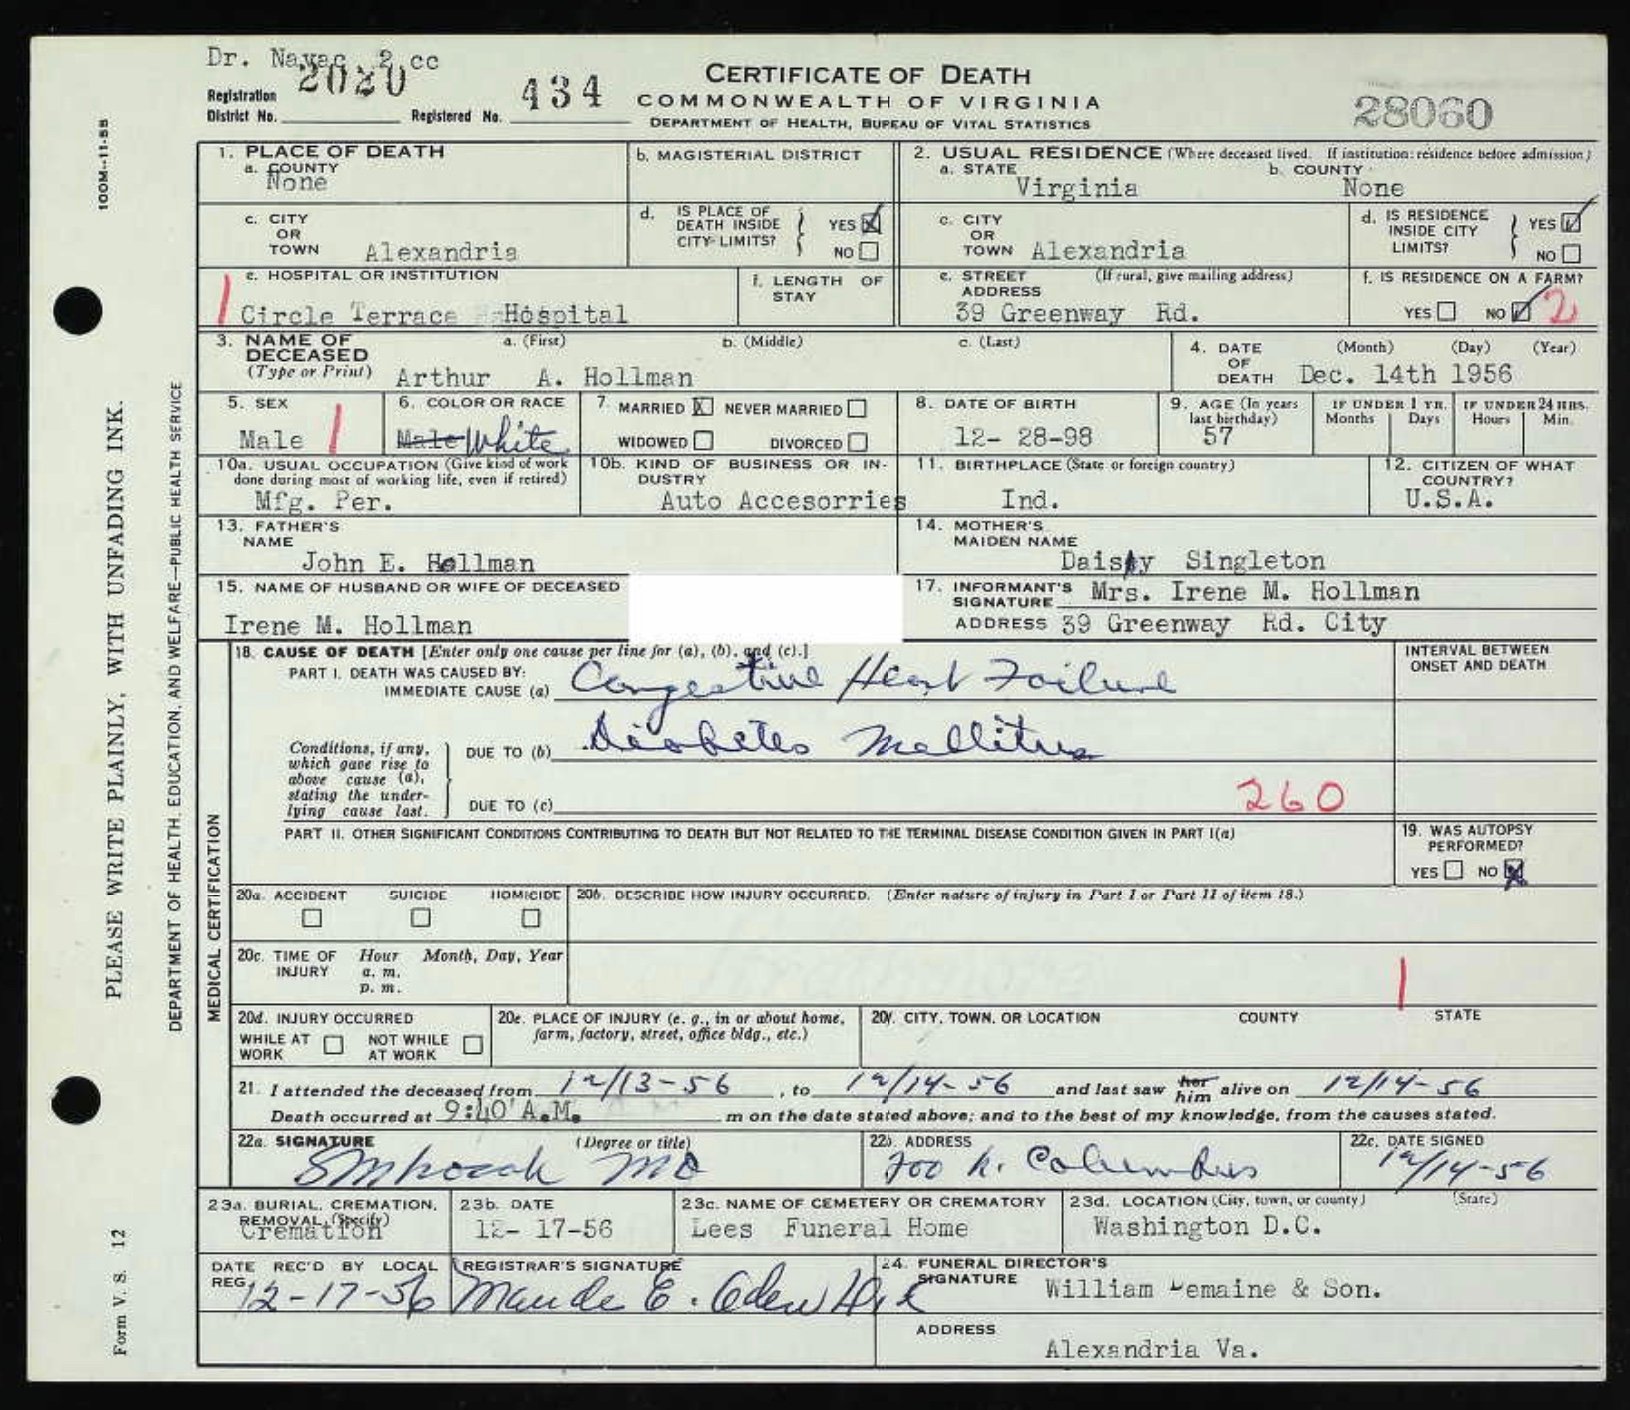 Dr. Nayac 2 cc
CERTIFICATE OF DEATH
COMMONWEALTH OF VIRGINIA
DEPARTMENT OF HEALTH, BUREAU OF VITAL STATISTICS
Registration District No. 2020 Registered No. 434
28060
100M--11-55
PLEASE WRITE PLAINLY, WITH UNFADING INK.
DEPARTMENT OF HEALTH, EDUCATION, AND WELFARE—PUBLIC HEALTH SERVICE
Form V. S. 12
1. PLACE OF DEATH
a. COUNTY None
b. MAGISTERIAL DISTRICT
2. USUAL RESIDENCE (Where deceased lived. If institution: residence before admission)
a. STATE Virginia b. COUNTY None
c. CITY OR TOWN Alexandria
d. IS PLACE OF DEATH INSIDE CITY LIMITS? YES X NO
c. CITY OR TOWN Alexandria
d. IS RESIDENCE INSIDE CITY LIMITS? YES NO
e. HOSPITAL OR INSTITUTION
1 Circle Terrace Hospital
f. LENGTH OF STAY
e. STREET ADDRESS (If rural, give mailing address)
39 Greenway Rd.
f. IS RESIDENCE ON A FARM?
YES NO 2
3. NAME OF DECEASED (Type or Print)
a. (First) b. (Middle) c. (Last)
Arthur A. Hollman
4. DATE OF DEATH (Month) (Day) (Year)
Dec. 14th 1956
5. SEX
Male 1
6. COLOR OR RACE
Male White
7. MARRIED X NEVER MARRIED
WIDOWED DIVORCED
8. DATE OF BIRTH
12- 28-98
9. AGE (In years last birthday)
57
IF UNDER 1 YR. Months Days
IF UNDER 24 HRS. Hours Min.
10a. USUAL OCCUPATION (Give kind of work done during most of working life, even if retired)
Mfg. Per.
10b. KIND OF BUSINESS OR INDUSTRY
Auto Accesorries
11. BIRTHPLACE (State or foreign country)
Ind.
12. CITIZEN OF WHAT COUNTRY?
U.S.A.
13. FATHER'S NAME
John E. Hollman
14. MOTHER'S MAIDEN NAME
Daisy Singleton
15. NAME OF HUSBAND OR WIFE OF DECEASED
Irene M. Hollman
17. INFORMANT'S SIGNATURE Mrs. Irene M. Hollman
ADDRESS 39 Greenway Rd. City
MEDICAL CERTIFICATION
18. CAUSE OF DEATH [Enter only one cause per line for (a), (b), and (c).]
INTERVAL BETWEEN ONSET AND DEATH
PART I. DEATH WAS CAUSED BY:
IMMEDIATE CAUSE (a) Congestive Heart Failure
Conditions, if any, which gave rise to above cause (a), stating the underlying cause last.
DUE TO (b) Diabetes Mellitus
DUE TO (c) 260
PART II. OTHER SIGNIFICANT CONDITIONS CONTRIBUTING TO DEATH BUT NOT RELATED TO THE TERMINAL DISEASE CONDITION GIVEN IN PART I(a)
19. WAS AUTOPSY PERFORMED?
YES NO X
20a. ACCIDENT SUICIDE HOMICIDE
20b. DESCRIBE HOW INJURY OCCURRED. (Enter nature of injury in Part I or Part II of item 18.)
20c. TIME OF INJURY Hour Month, Day, Year
a. m.
p. m.
1
20d. INJURY OCCURRED
WHILE AT WORK NOT WHILE AT WORK
20e. PLACE OF INJURY (e. g., in or about home, farm, factory, street, office bldg., etc.)
20f. CITY, TOWN, OR LOCATION COUNTY STATE
21. I attended the deceased from 12/13-56, to 12/14-56 and last saw her him alive on 12/14-56
Death occurred at 9:40 A.M. m on the date stated above; and to the best of my knowledge, from the causes stated.
22a. SIGNATURE (Degree or title)
MD
22b. ADDRESS
700 N. Columbus
22c. DATE SIGNED
12/14-56
23a. BURIAL, CREMATION, REMOVAL (Specify)
Cremation
23b. DATE
12- 17-56
23c. NAME OF CEMETERY OR CREMATORY
Lees Funeral Home
23d. LOCATION (City, town, or county) (State)
Washington D.C.
DATE REC'D BY LOCAL REG.
12-17-56
REGISTRAR'S SIGNATURE
Maude E.
24. FUNERAL DIRECTOR'S SIGNATURE William Demaine & Son.
ADDRESS
Alexandria Va.